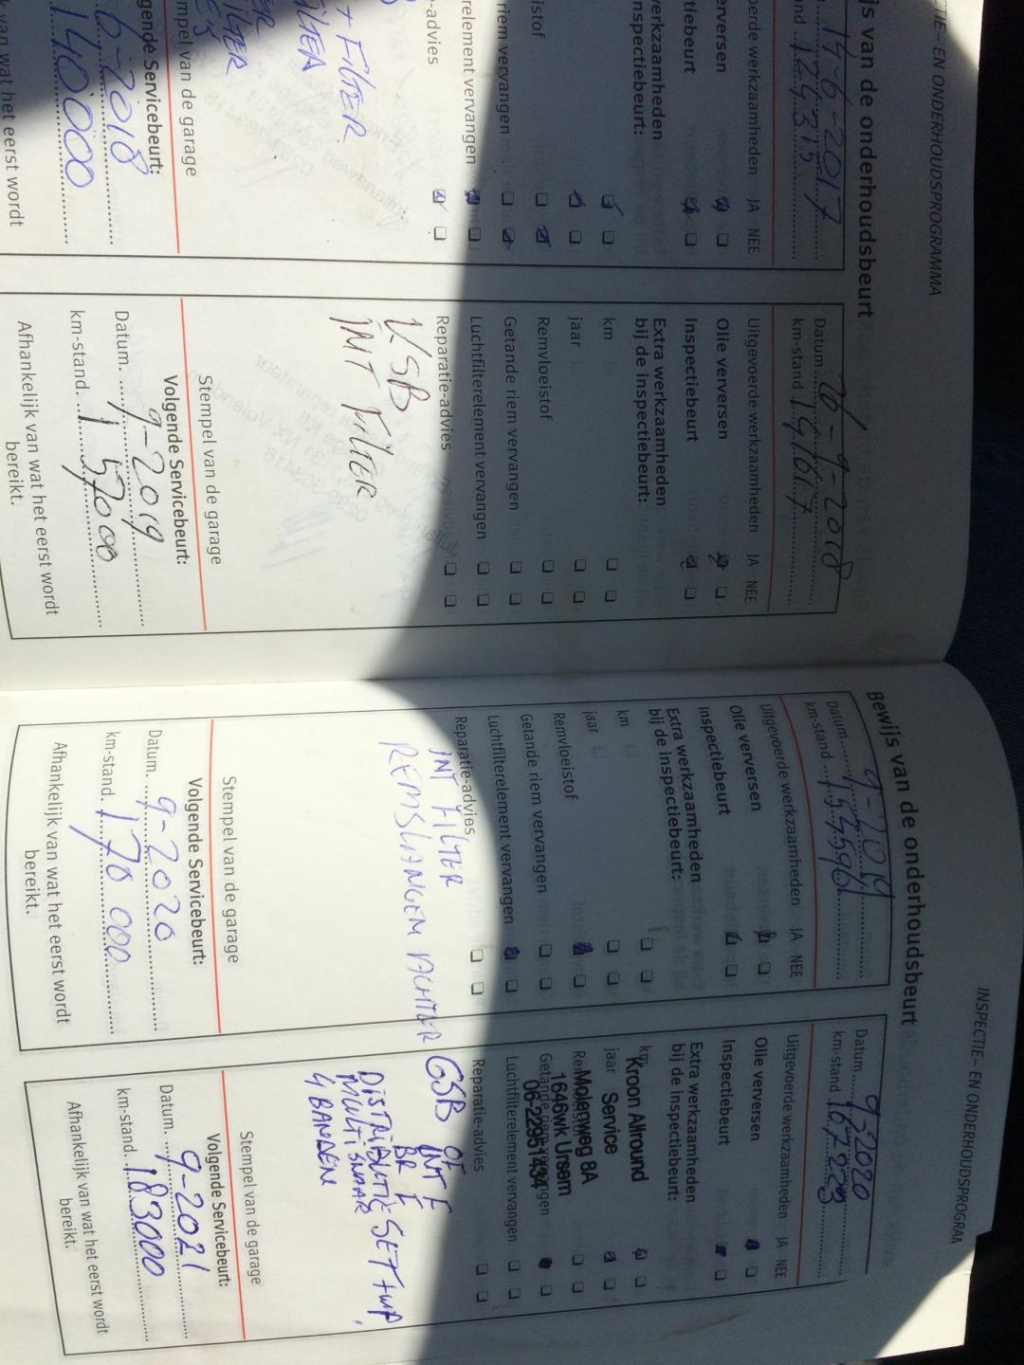 CTIE– EN ONDERHOUDSPROGRAMMA
js van de onderhoudsbeurt
14-6-2017
and 124315
oerde werkzaamheden JA NEE
erversen
tiebeurt
verkzaamheden
nspectiebeurt:
istof
riem vervangen
relement vervangen
-advies
+ FiLTER
mpel van de garage
gende Servicebeurt:
6-2018
140000
van wat het eerst wordt
Datum 26-9-2018
km-stand 141617
Uitgevoerde werkzaamheden JA NEE
Olie verversen
Inspectiebeurt
Extra werkzaamheden
bij de inspectiebeurt:
km
jaar
Remvloeistof
Getande riem vervangen
Luchtfilterelement vervangen
Reparatie-advies
KSB
iNT FiLTER
Stempel van de garage
Volgende Servicebeurt:
Datum. 9-2019
km-stand. 157000
Afhankelijk van wat het eerst wordt
bereikt.
Bewijs van de onderhoudsbeurt
Datum 9-2019
km-stand 154596
Uitgevoerde werkzaamheden JA NEE
Olie verversen
Inspectiebeurt
Extra werkzaamheden
bij de inspectiebeurt:
km
jaar
Remvloeistof
Getande riem vervangen
Luchtfilterelement vervangen
Reparatie-advies
iNT FiLTER
REMSLANGEN ACHTER
Stempel van de garage
Volgende Servicebeurt:
Datum. 9-2020
km-stand. 170 000
Afhankelijk van wat het eerst wordt
bereikt.
INSPECTIE– EN ONDERHOUDSPROGRAA
Datum 9-2020
km-stand 167223
Uitgevoerde werkzaamheden JA NEE
Olie verversen
Inspectiebeurt
Extra werkzaamheden
bij de inspectiebeurt:
km
Kroon Allround
jaar Service
Molenweg 8A
1646wk Ursem
06-22951434
Luchtfilterelement vervangen
Reparatie-advies
GSB OF
iNT F
BR F
DiSTRiBUTiE SET + WP
MULTiSNAAR
4 BANDEN
Stempel van de garage
Volgende Servicebeurt:
Datum. 9-2021
km-stand. 183000
Afhankelijk van wat het eerst wordt
bereikt.